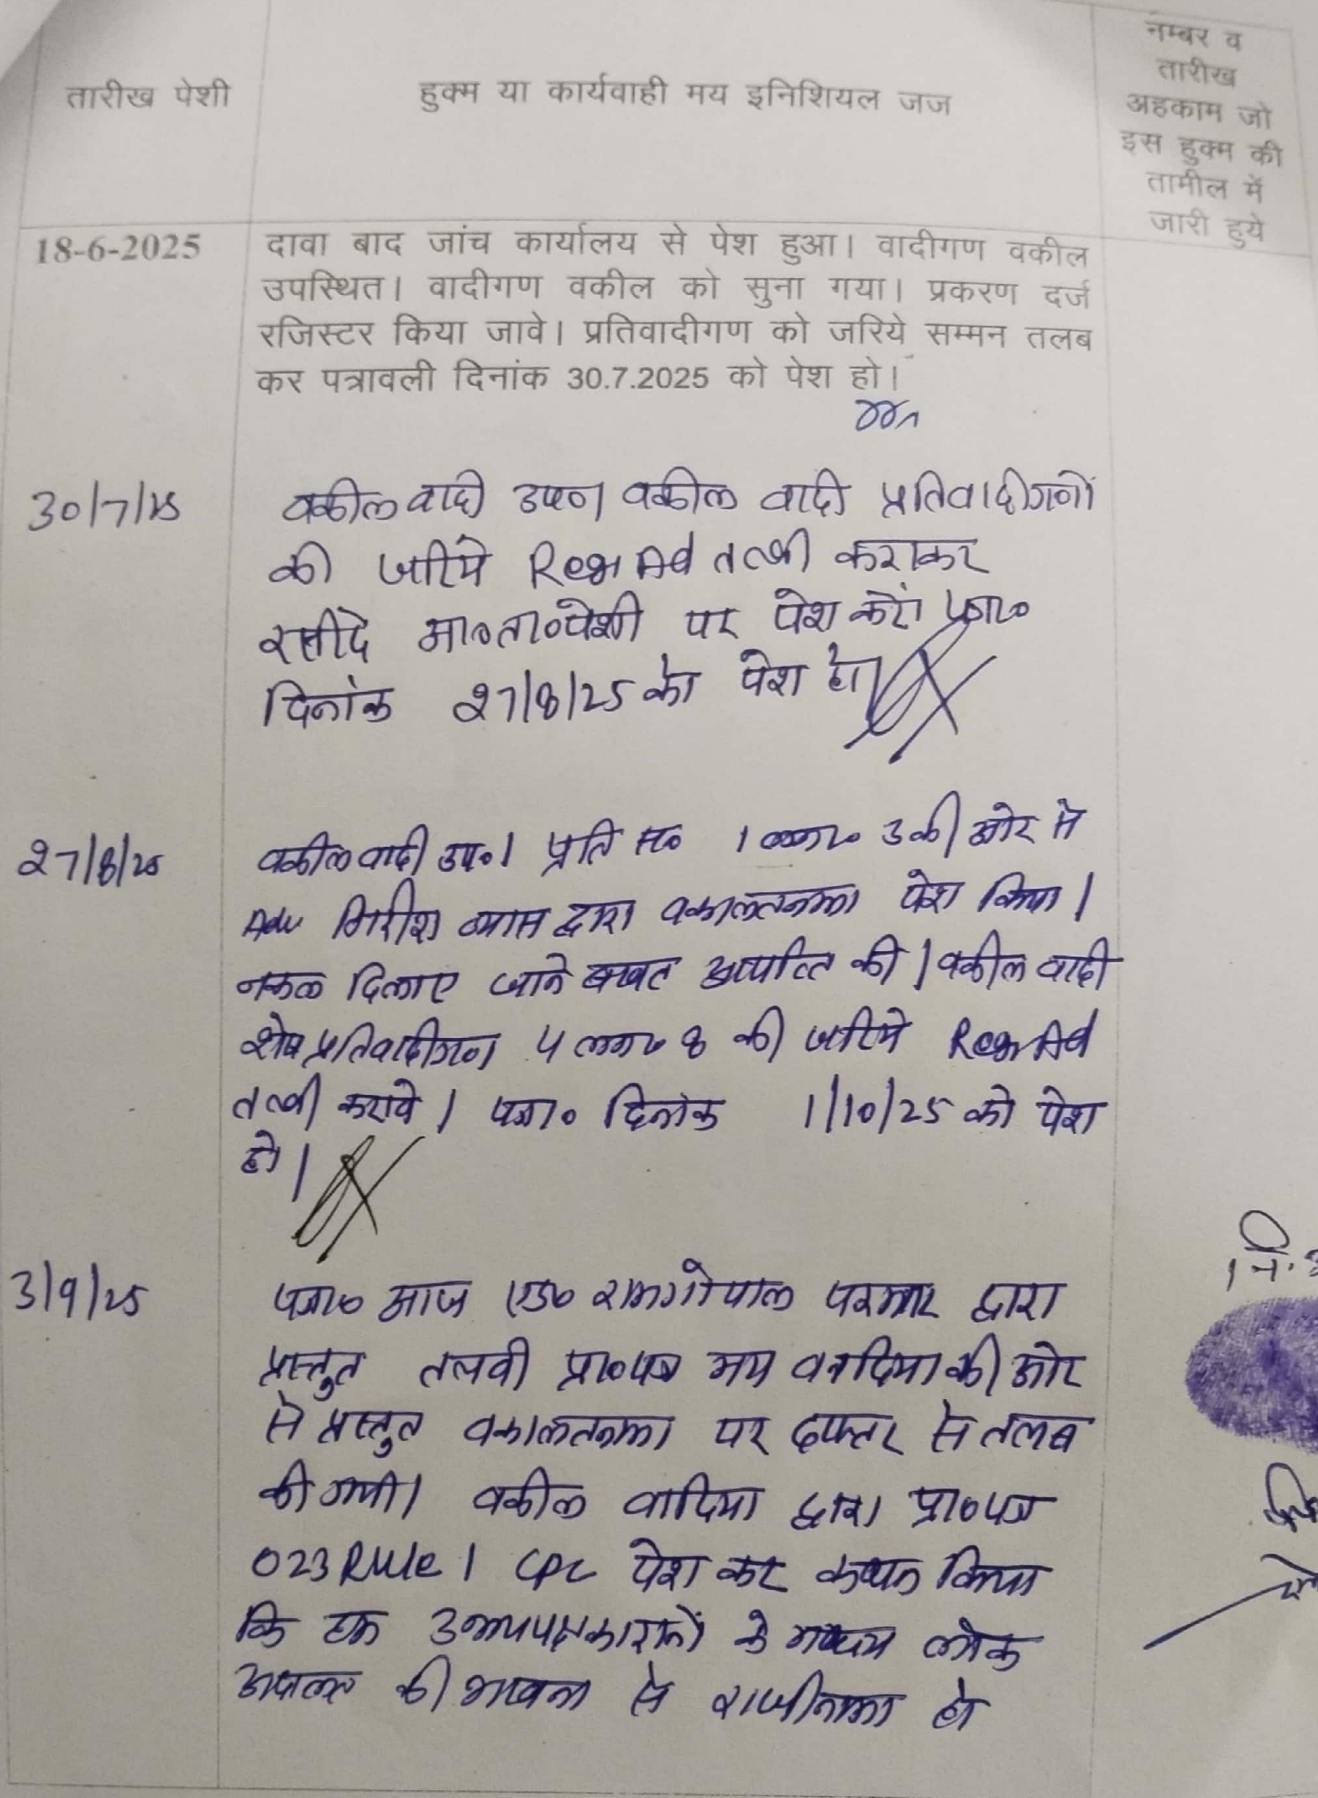 तारीख पेशी
हुक्म या कार्यवाही मय इनिशियल जज
नम्बर व
तारीख
अहकाम जो
इस हुक्म की
तामील में
जारी हुये
18-6-2025
दावा बाद जांच कार्यालय से पेश हुआ। वादीगण वकील
उपस्थित। वादीगण वकील को सुना गया। प्रकरण दर्ज
रजिस्टर किया जावे। प्रतिवादीगण को जरिये सम्मन तलब
कर पत्रावली दिनांक 30.7.2025 को पेश हो।
30/7/25
वकील वादी उप०। वकील वादी प्रतिवादीगणों
की जरिये Regu Ad तल्बी कराकर
रसीदे आ०ता०पेशी पर पेश करें। पत्रा०
दिनांक 27/8/25 को पेश हो।
27/8/25
वकील वादी उप०। प्रति सं० 1 3 की ओर से
Adv गिरीश व्यास द्वारा वकालतनामा पेश किया।
नकल दिलाए जाने आपत्ति की। वकील वादी
शेष प्रतिवादीगण 4 लगा० 8 की जरिये Regu Ad
तल्बी करावे। पत्रा० दिनांक 1/10/25 को पेश
हो।
3/9/25
पत्रा० आज एड० रामगोपाल परमार द्वारा
प्रस्तुत तलबी प्रा०पत्र मय वादिया की ओर
से प्रस्तुत वकालतनामा पर दफ्तर से तलब
की गयी। वकील वादिया द्वारा प्रा०पत्र
O23 Rule 1 CPC पेश कर कथन किया
कि हम उभयपक्षकारानों के मध्य लोक
अदालत की भावना से राजीनामा हो